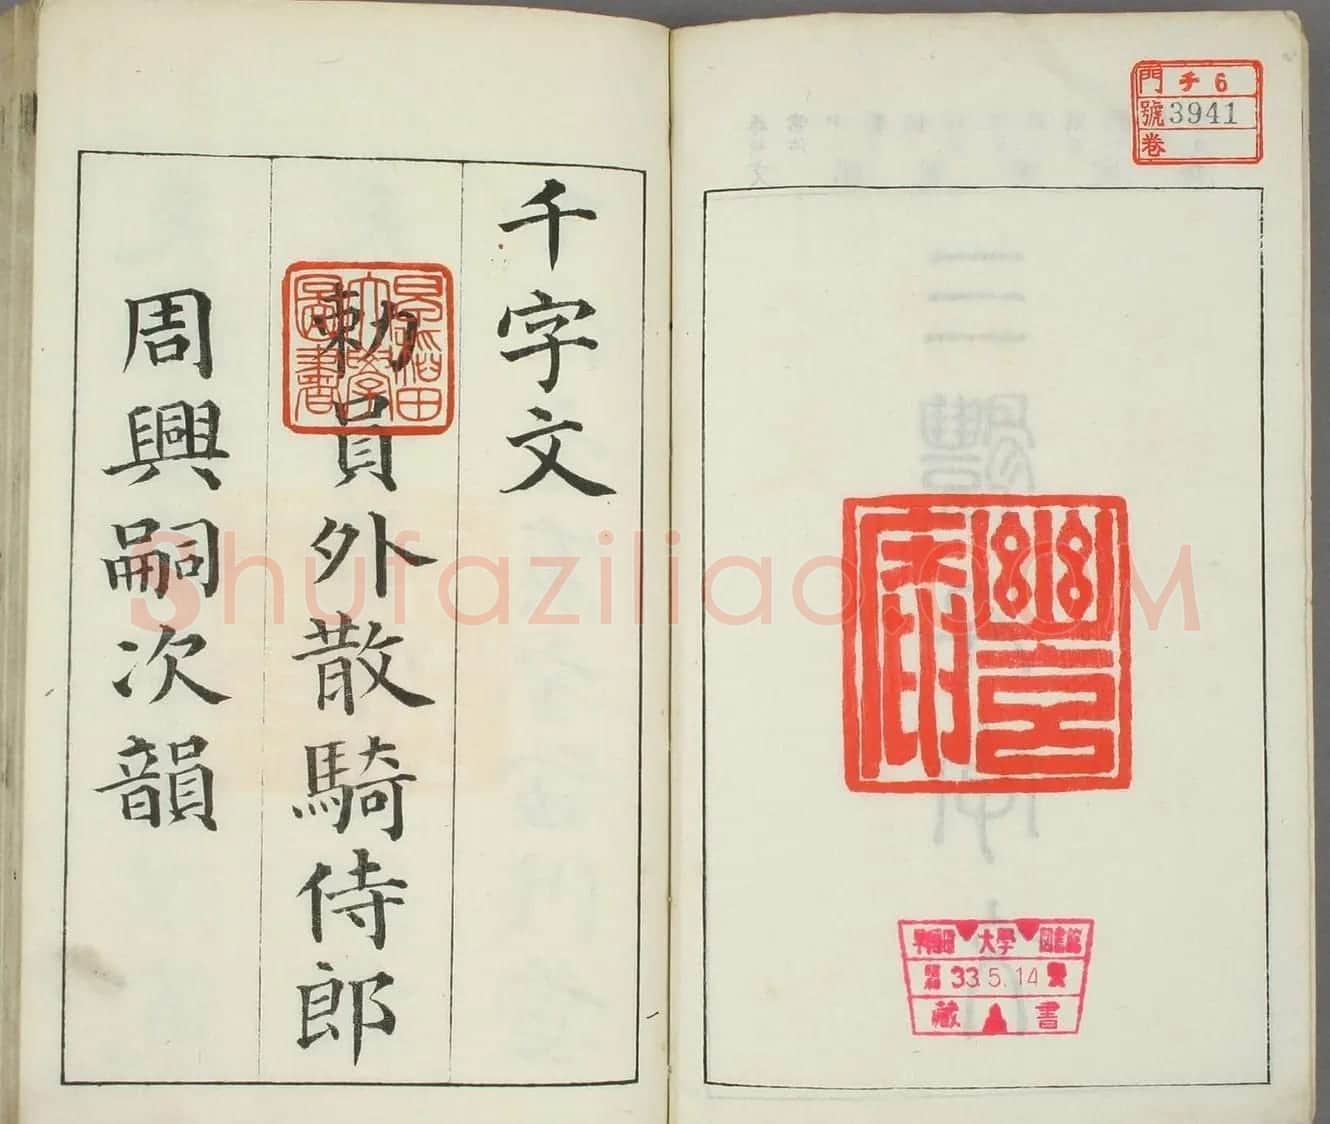 門 千 6
號 3941
卷
早稲田 大學 図書館
33.5.14
藏書
千字文
勅員外散騎侍郎
周興嗣次韻
早稲田
大學
圖書
shufaziliao.com